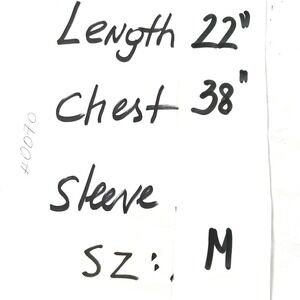 Length 22"
Chest 38"
Sleeve
SZ: M